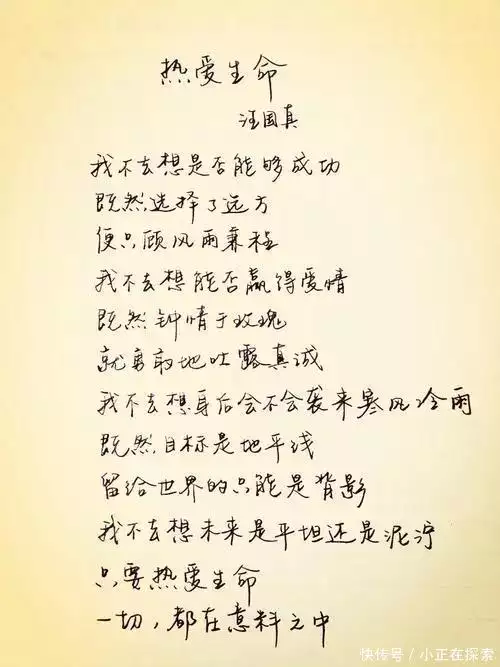 热爱生命
汪国真
我不去想是否能够成功
既然选择了远方
便只顾风雨兼程
我不去想能否赢得爱情
既然钟情于玫瑰
就勇敢地吐露真诚
我不去想身后会不会袭来寒风冷雨
既然目标是地平线
留给世界的只能是背影
我不去想未来是平坦还是泥泞
只要热爱生命
一切，都在意料之中
快传号/小正在探索